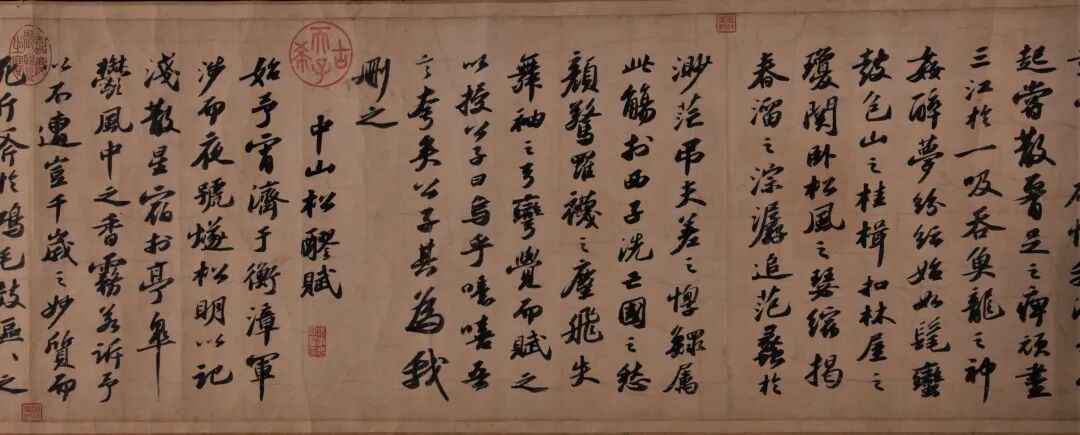 起嘗散腰足之痺頑盡
三江於一吸吞魚龍之神
姦醉夢紛紜始如髦蠻
鼓包山之桂楫扣林屋之
瓊關卧松風之瑟縮揭
春溜之淙潺追范蠡於
渺茫吊夫差之惸鰥屬
此觴於西子洗亡國之愁
顏驚羅襪之塵飛失
舞袖之弓彎覺而賦之
以授公子曰烏乎噫嘻吾
言夸矣公子其為我
刪之
古希天子
中山松醪賦
始予宵濟于衡漳軍
涉而夜號燧松明以記
淺散星宿於亭皐
鬱風中之香霧若訴予
以不遭豈千歲之妙質而
死斤斧於鴻毛效區區之